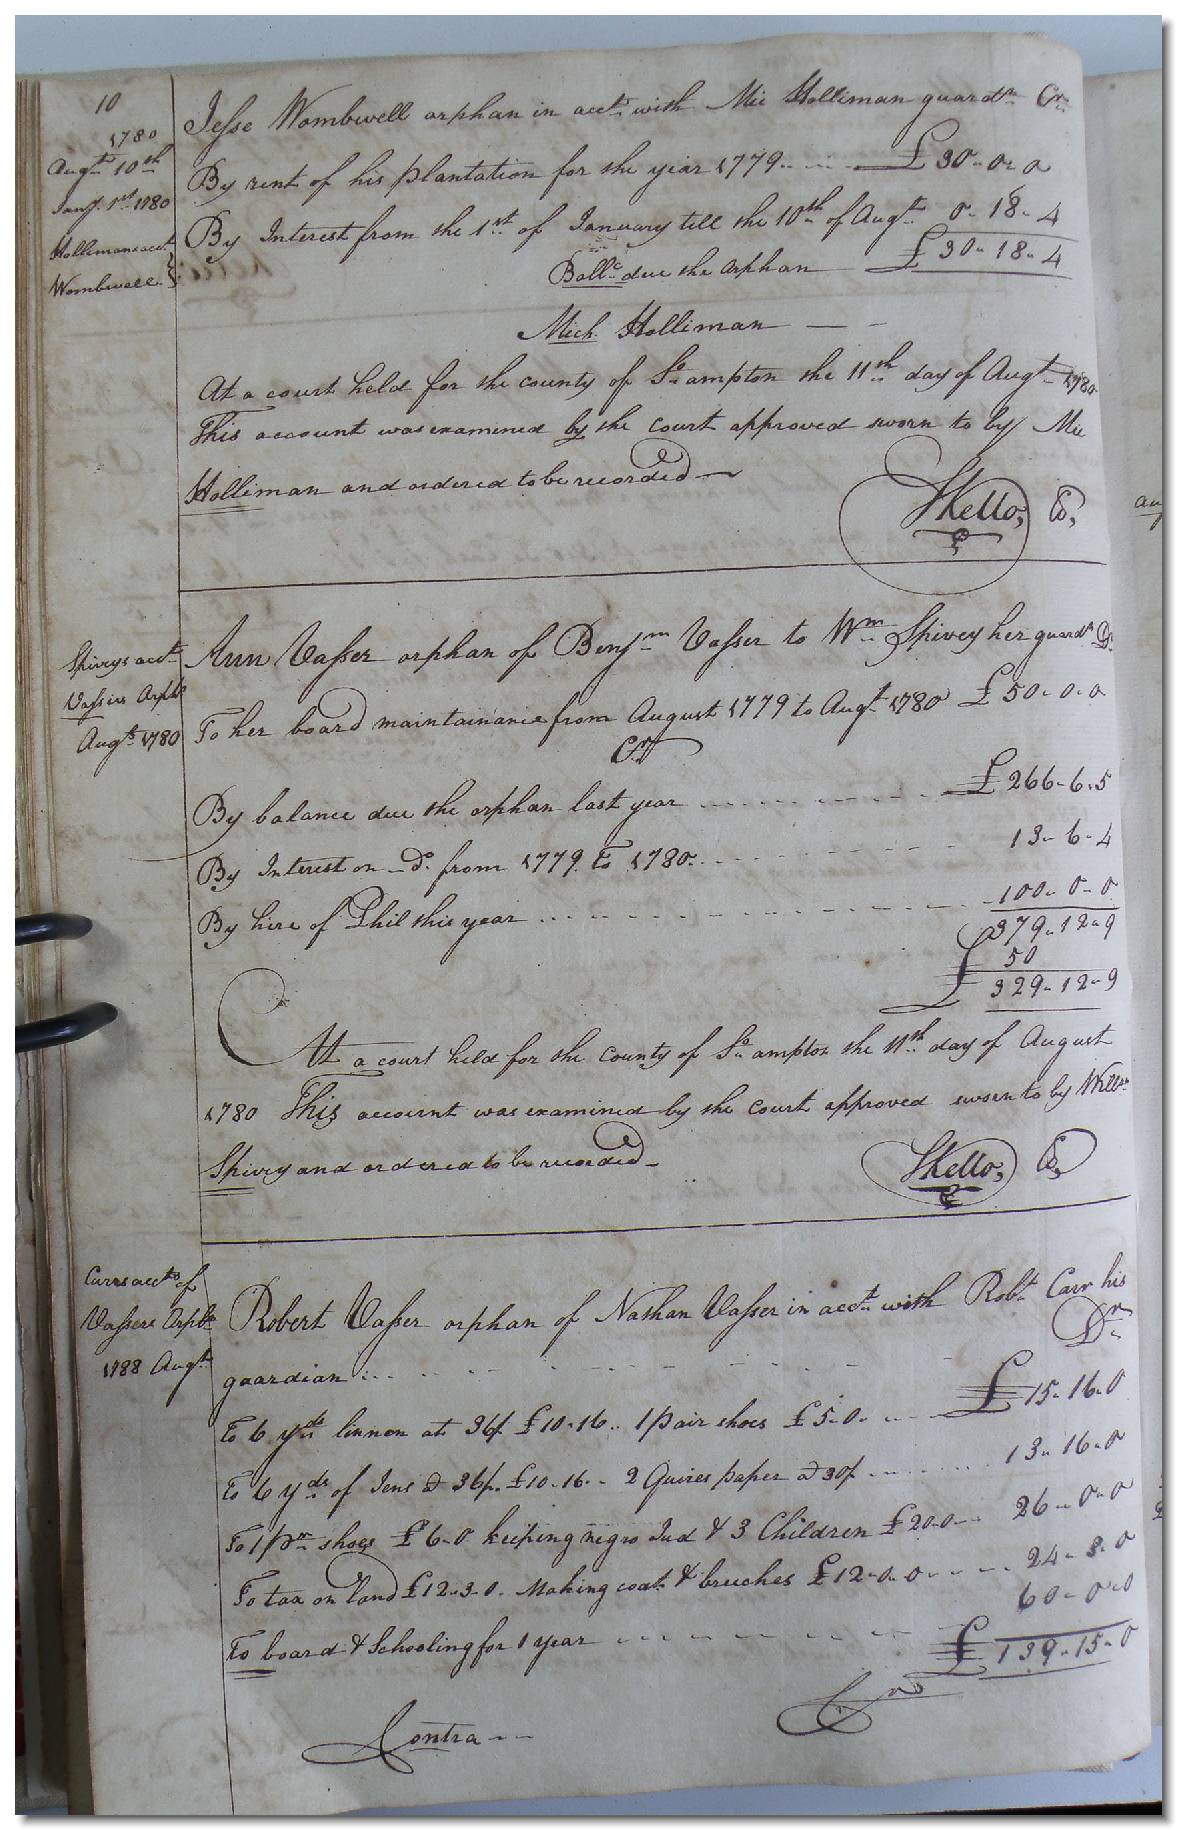 10
1780
Augt. 10th
Jany. 1st 1780
Hollimans acct
Wombwell
Jesse Wombwell orphan in acct. with Mic Holliman guardn. Cr.
By rent of his plantation for the year 1779 .. £ 30 - 0 - 0
By Interest from the 1st of January till the 10th of Augt. 0 - 18 - 4
Balle. due the orphan £ 30 - 18 - 4
Mich. Holliman
At a court held for the county of So.ampton the 11th day of Augt. 1780
This account was examined by the court approved sworn to by Mic
Holliman and ordered to be recorded
SKello,
Spiveys acct
Vassers Orphs
Augt. 1780
Ann Vasser orphan of Benjm Vasser to Wm Spivey her guardn Dr
To her board maintainance from August 1779 to Augt. 1780 £ 50 - 0 - 0
Cr
By balance due the orphan last year £ 266 - 6 - 5
By Interest on Do. from 1779 To 1780 13 - 6 - 4
By hire of Phil this year 100 - 0 - 0
379 - 12 - 9
50
£ 329 - 12 - 9
At a court held for the County of So.ampton the 11th day of August
1780 This account was examined by the court approved sworn to by Willm
Spivey and ordered to be recorded
SKello,
Carrs accts of
Vassers Orph
1788 Augt
Robert Vasser orphan of Nathan Vasser in acct. with Robt. Carr his
guardian Dr
To 6 yds linnon at 36/. £10-16.. 1 pair shoes £5-0. £ 15 - 16 - 0
To 6 yds of Jens @ 36/. £10-16 - 2 Quires paper @ 30/. 13 - 16 - 0
To 1 pr shoes £6-0 keeping negro Jud & 3 Children £20-0 - 26 - 0 - 0
To tax on land £12-3-0. Making coat & breeches £12-0-0 24 - 3 - 0
To board & Schooling for 1 year 60 - 0 - 0
£ 139 - 15 - 0
Contra